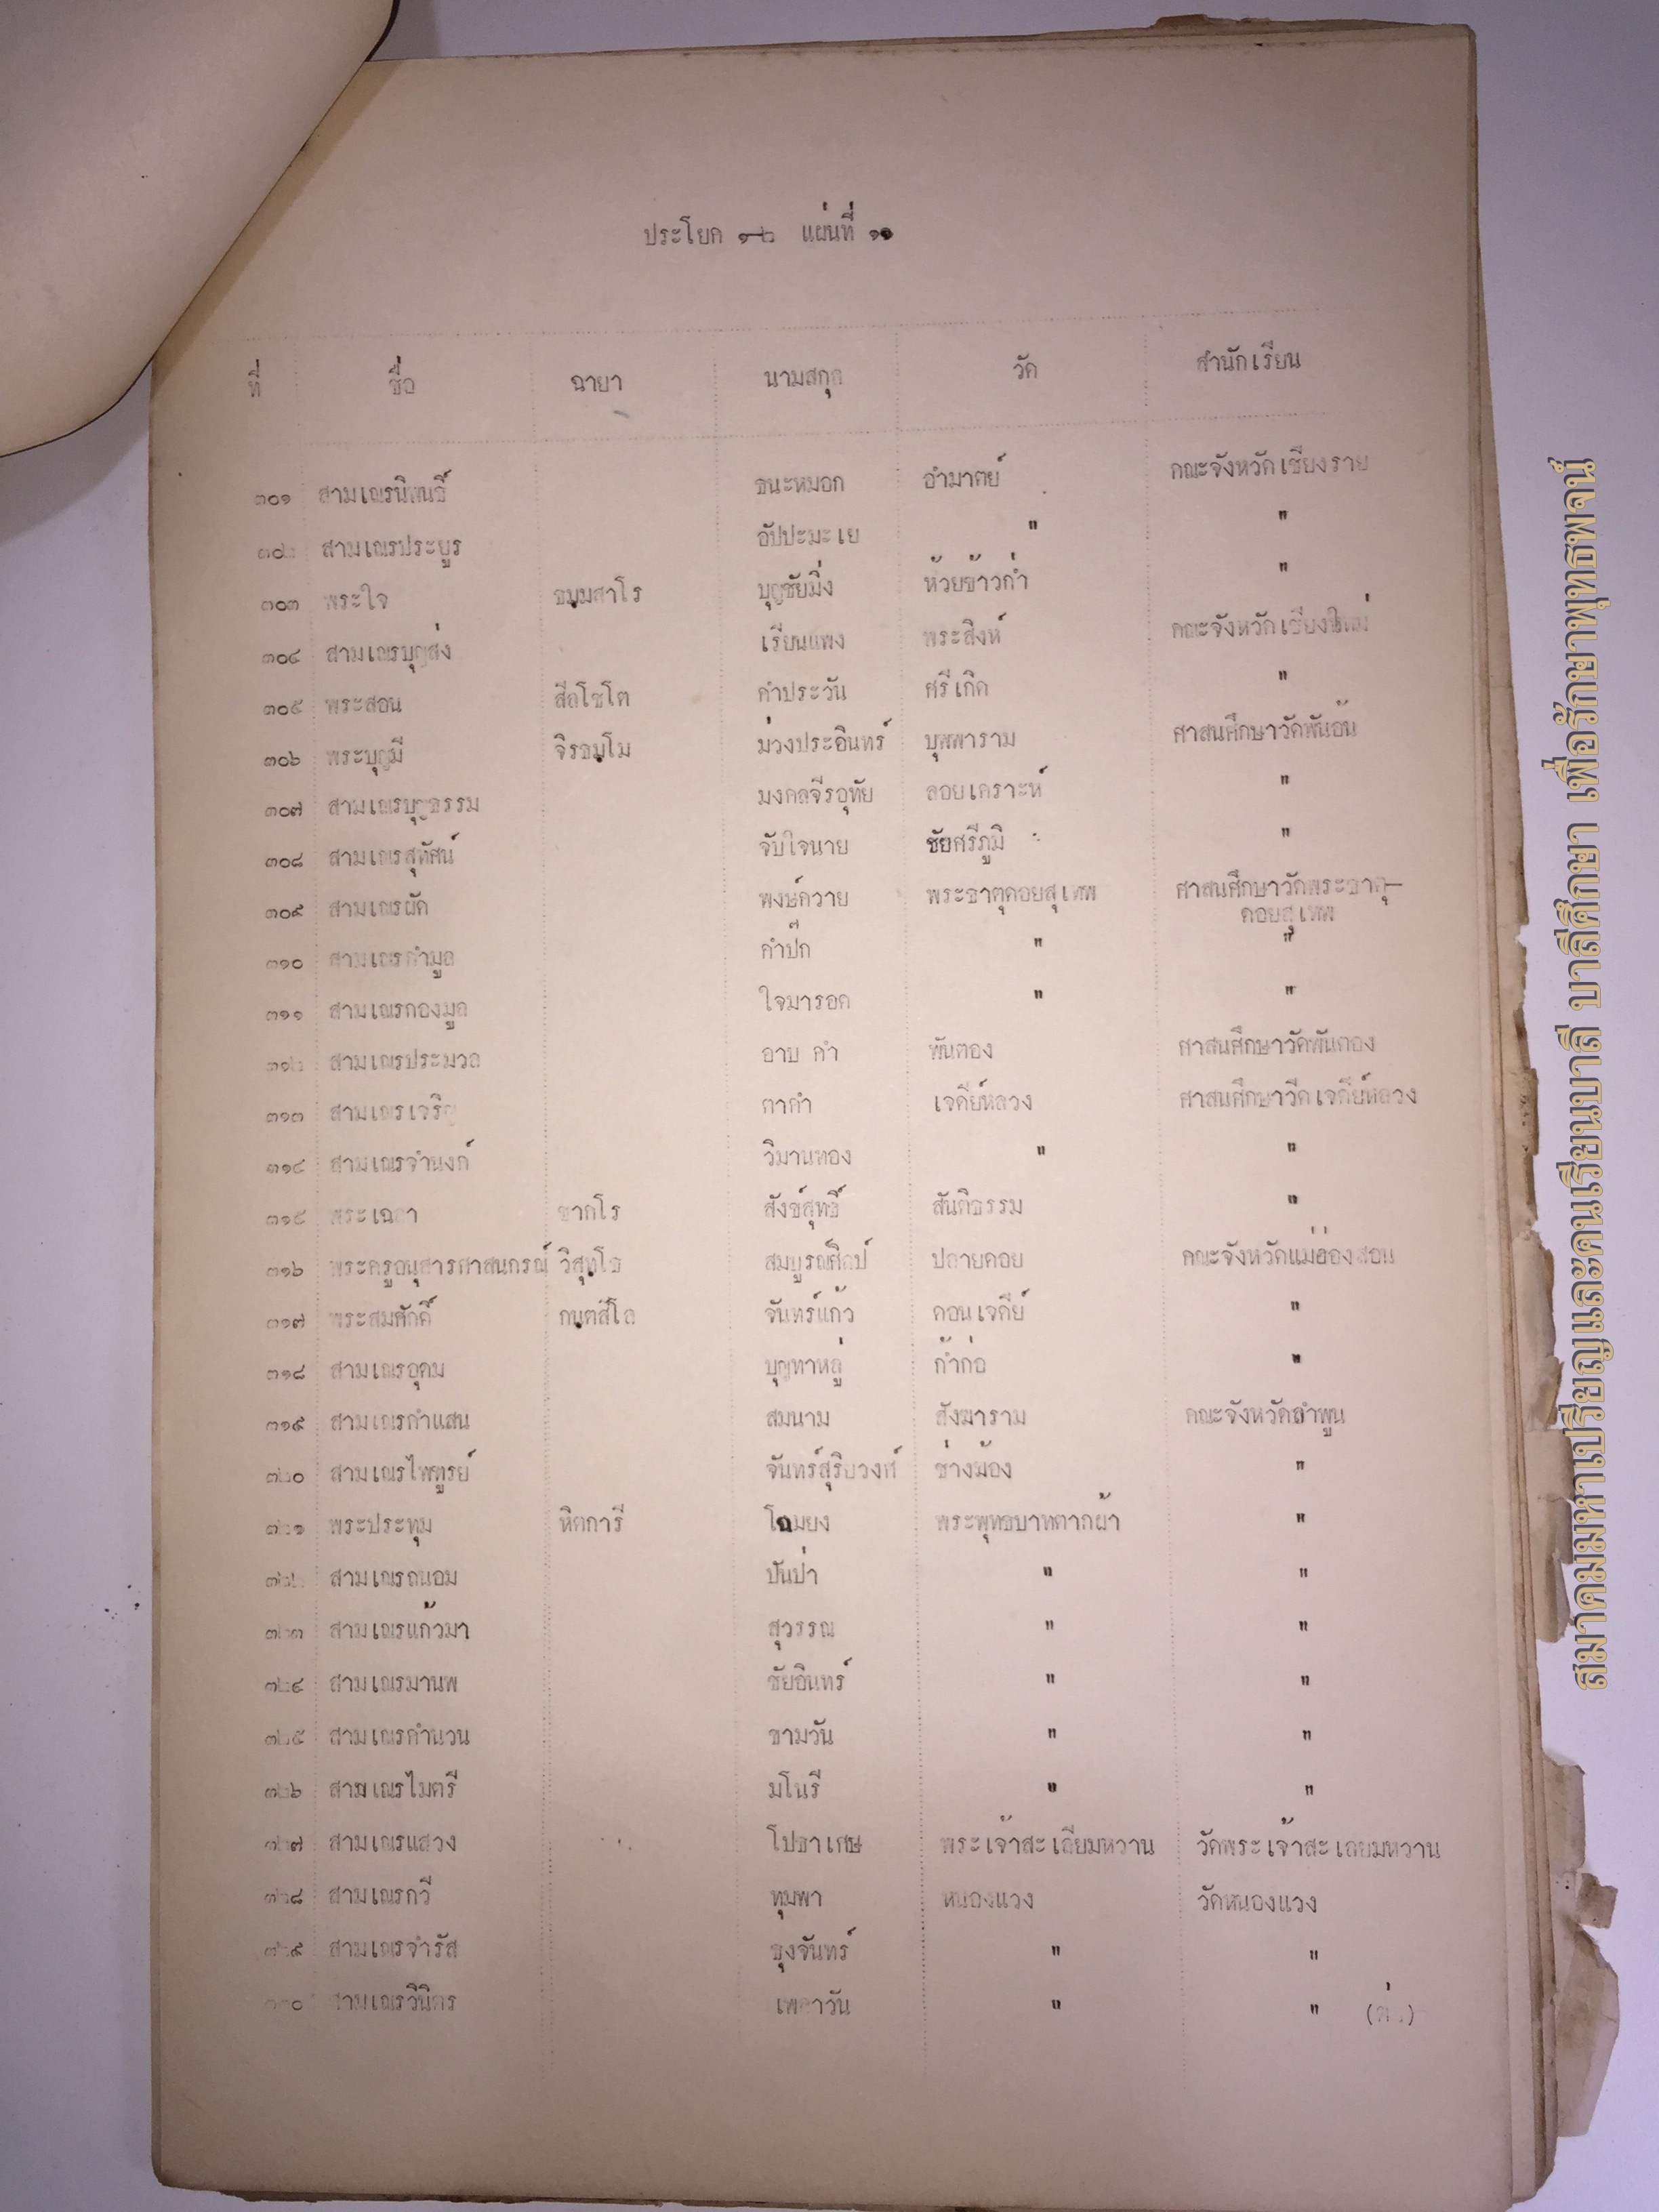 ประโยค ๑-๒ แผ่นที่ ๑๑
ที่ ชื่อ ฉายา นามสกุล วัด สำนักเรียน
๓๐๑ สามเณรนิพนธ์ ธนะหมอก อำมาตย์ คณะจังหวัดเชียงราย
๓๐๒ สามเณรประยูร อัปปะมะเย " "
๓๐๓ พระใจ ธมฺมสาโร บุญชัยมิ่ง ห้วยข้าวก่ำ "
๓๐๔ สามเณรบุญส่ง เรียนแพง พระสิงห์ คณะจังหวัดเชียงใหม่
๓๐๕ พระสอน สีลโชโต คำประวัน ศรีเกิด "
๓๐๖ พระบุญมี จิรธมฺโม ม่วงประอินทร์ บุพพาราม ศาสนศึกษาวัดพันอ้น
๓๐๗ สามเณรบุญธรรม มงคลจีรอุทัย ลอยเคราะห์ "
๓๐๘ สามเณรสุทัศน์ จับใจนาย ชัยศรีภูมิ "
๓๐๙ สามเณรผัด พงษ์ควาย พระธาตุดอยสุเทพ ศาสนศึกษาวัดพระธาตุ-
ดอยสุเทพ
๓๑๐ สามเณรคำมูล คำป๊ก " "
๓๑๑ สามเณรกองมูล ใจมารอด " "
๓๑๒ สามเณรประมวล อาบ คำ พันตอง ศาสนศึกษาวัดพันตอง
๓๑๓ สามเณรเจริญ ตาคำ เจดีย์หลวง ศาสนศึกษาวัดเจดีย์หลวง
๓๑๔ สามเณรจำนงค์ วิมานทอง " "
๓๑๕ สังข์สุทธิ์ สันติธรรม "
๓๑๖ พระครูอนุสารศาสนกรณ์ วิสุทฺโธ สมบูรณ์ศิลป์ ปลายดอย คณะจังหวัดแม่ฮ่องสอน
๓๑๗ พระสมศักดิ์ กนฺตสีโล จันทร์แก้ว ดอนเจดีย์ "
๓๑๘ สามเณรอุดม บุญทาหลู่ ก้ำก่อ "
๓๑๙ สามเณรคำแสน สมนาม สังฆาราม คณะจังหวัดลำพูน
๓๒๐ สามเณรไพฑูรย์ จันทร์สุริยวงศ์ ช่างฆ้อง "
๓๒๑ พระประทุม หิตการี โฉมยง พระพุทธบาทตากผ้า "
๓๒๒ สามเณรถนอม ปันป่า " "
๓๒๓ สามเณรแก้วมา สุวรรณ " "
๓๒๔ สามเณรมานพ ชัยอินทร์ " "
๓๒๕ สามเณรคำนวน ชามวัน " "
๓๒๖ สามเณรไมตรี มโนรี " "
๓๒๗ สามเณรแสวง โปธาเกษ พระเจ้าสะเลียมหวาน วัดพระเจ้าสะเลียมหวาน
๓๒๘ สามเณรกวี ทุมพา หนองแวง วัดหนองแวง
๓๒๙ สามเณรจำรัส ชุงจันทร์ " "
๓๓๐ สามเณรวินิตร เพลาวัน " " (ต่อ)
สมาคมมหาเปรียญและคนเรียนบาลี บาลีศึกษา เพื่อรักษาพุทธพจน์